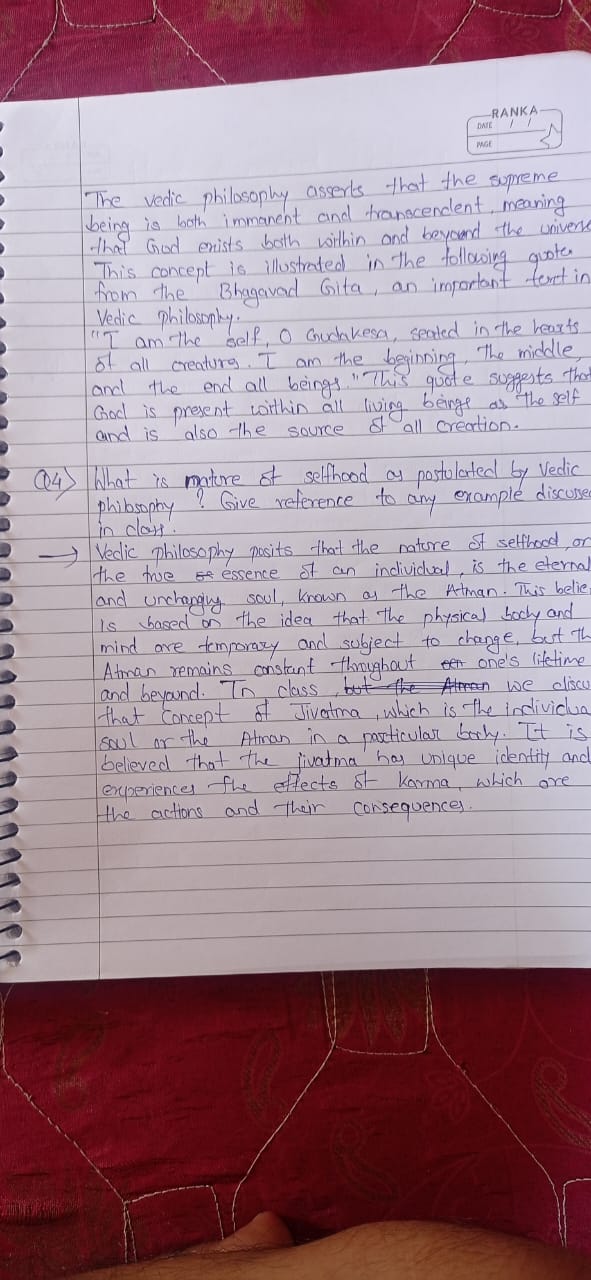 RANKA
DATE / /
PAGE
The vedic philosophy asserts that the supreme
being is both immanent and transcendent, meaning
that God exists both within and beyound the universe
This concept is illustrated in the following quote
from the Bhagavad Gita, an important text in
Vedic philosophy.
"I am the self, O Gudakesa, seated in the hearts
of all creature. I am the beginning, The middle,
and the end all beings." This quote suggests that
God is present within all living beings as the self
and is also the source of all creation.
Q4> What is nature of selfhood as postulated by Vedic
philosophy ? Give reference to any example discusse
in class.
→ Vedic philosophy posits that the nature of selfhood, or
the true essence of an individual, is the eternal
and unchanging soul, known as the Atman. This belie
is based on the idea that the physical body and
mind are temporary and subject to change, but th
Atman remains constant throughout one's lifetime
and beyound. In class, but the Atman we discu
that concept of Jivatma, which is the individua
soul or the Atman in a particular body. It is
believed that the jivatma has unique identity and
experiences the effects of karma, which are
the actions and their consequences.